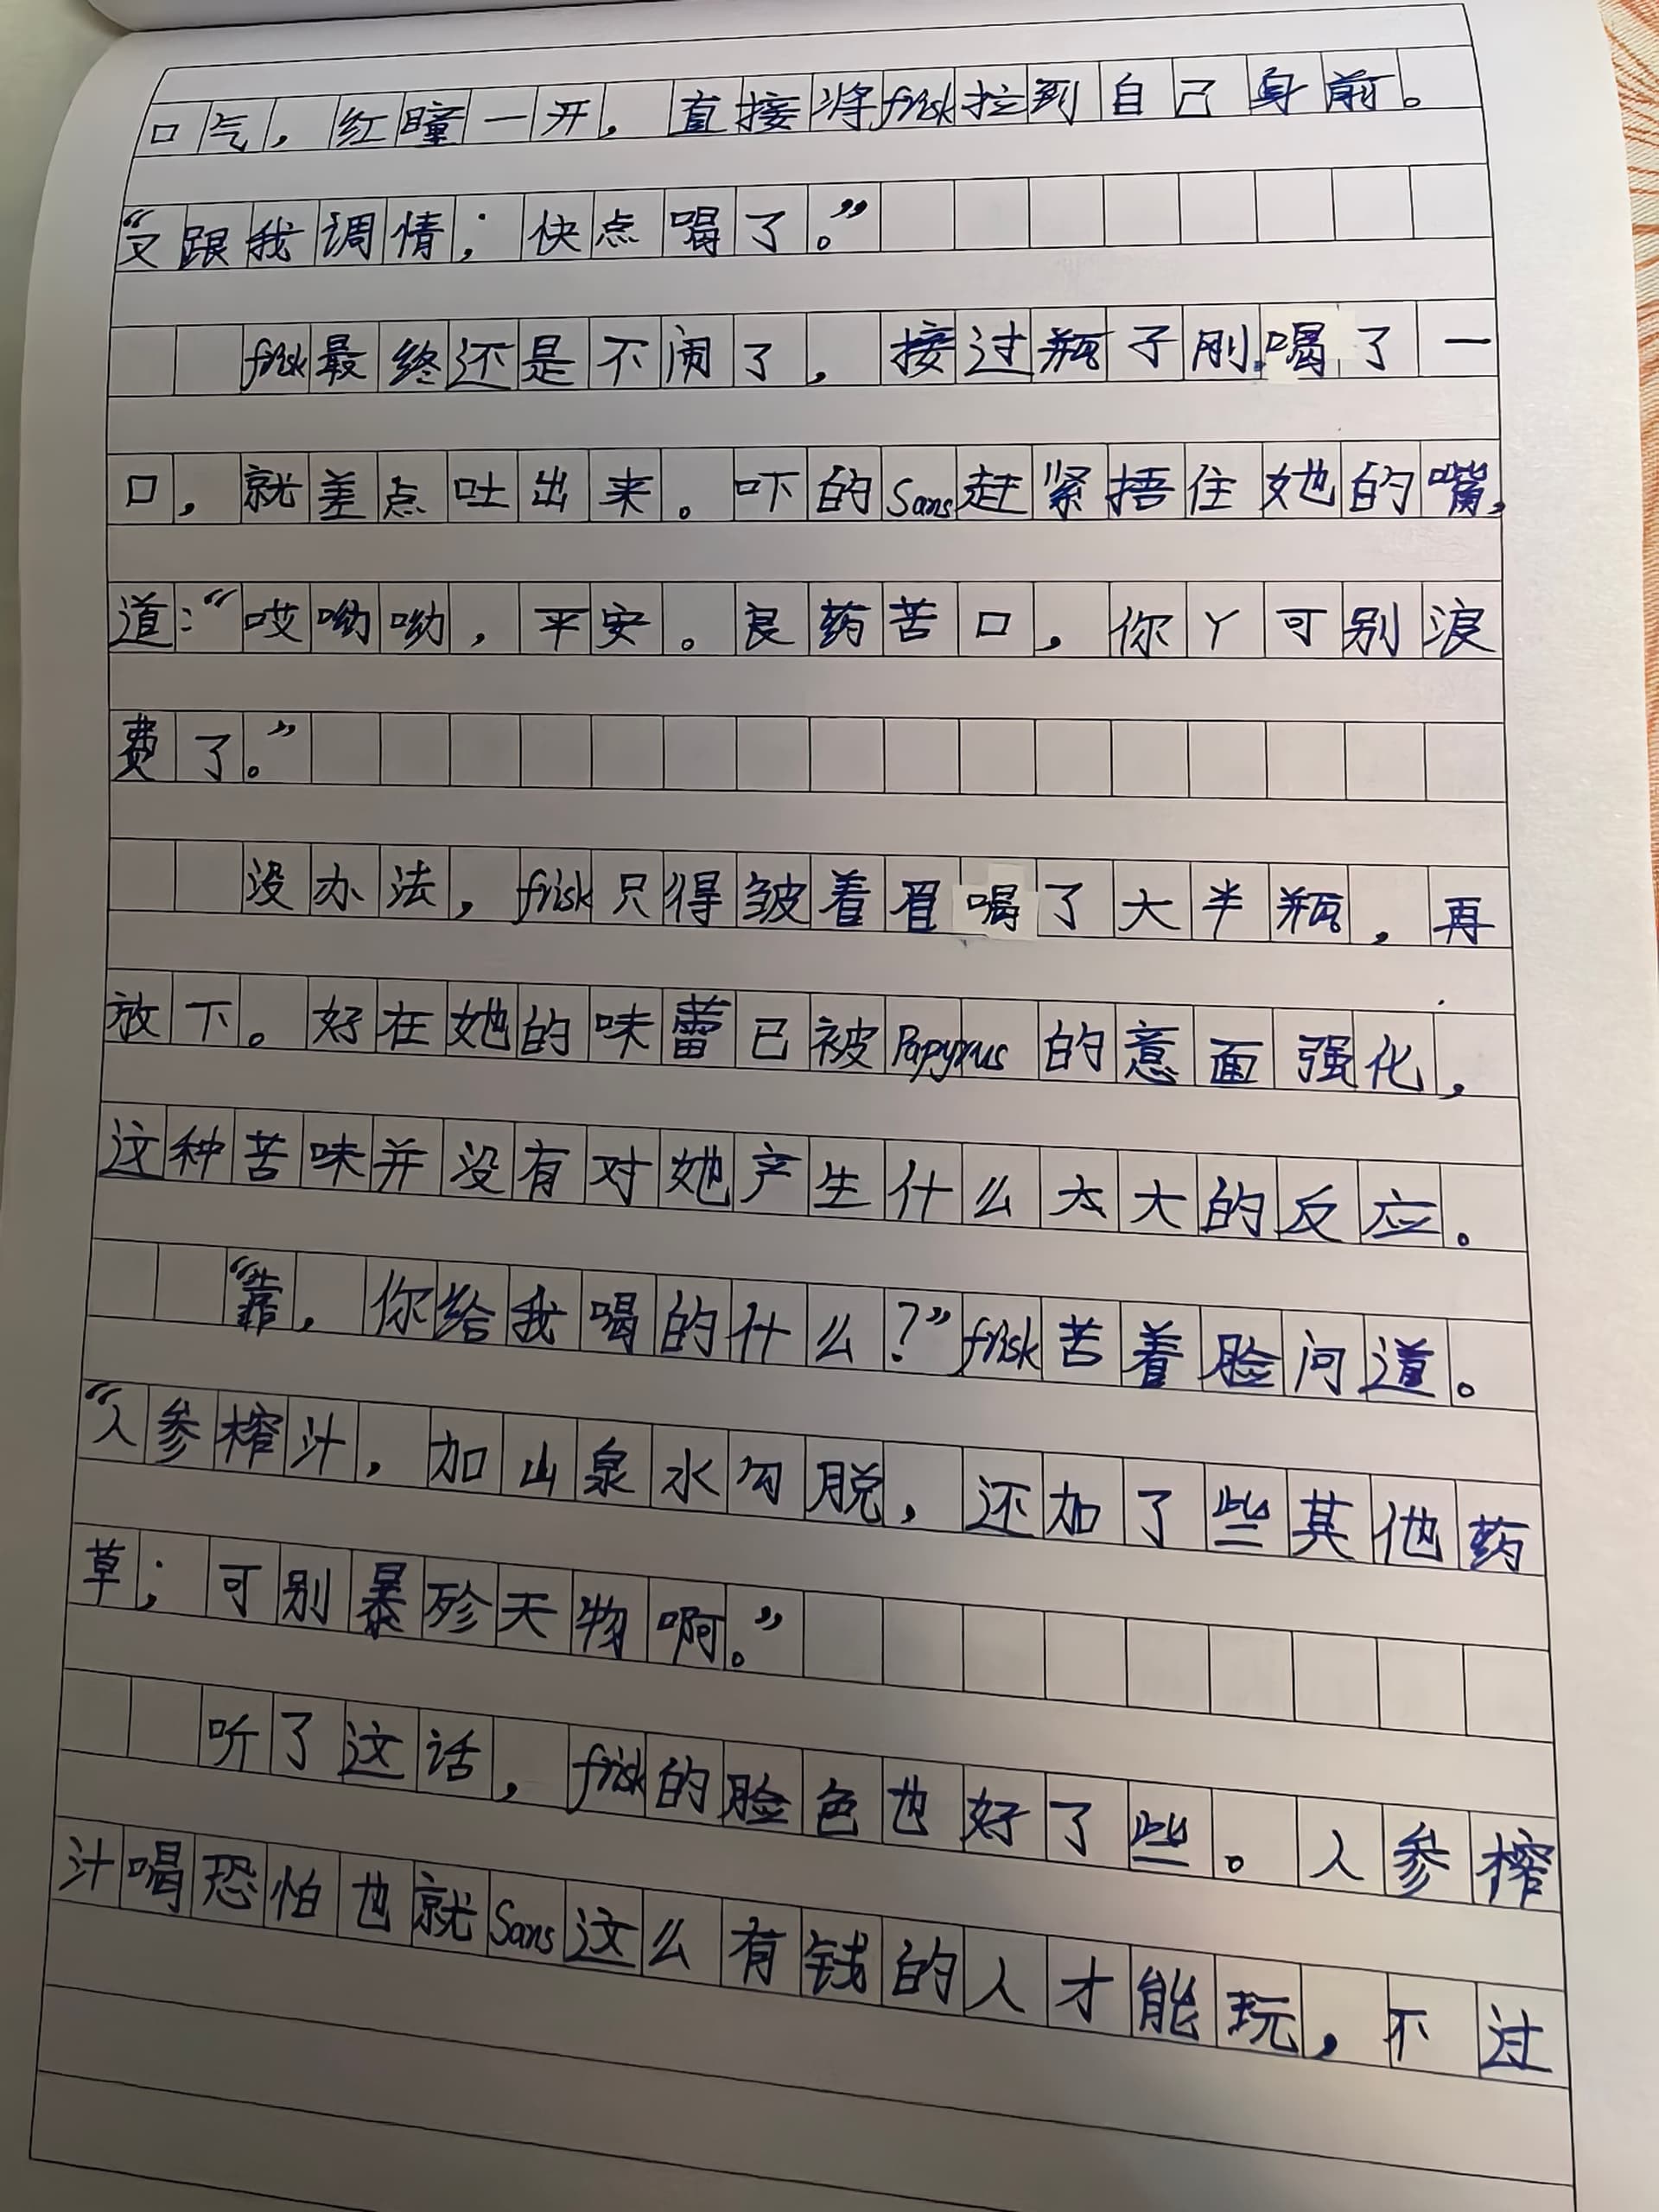 口气，红瞳一开，直接将frisk拉到自己身前。
“又跟我调情；快点喝了。”
frisk最终还是不闹了，接过瓶子刚喝了一
口，就差点吐出来。吓的Sans赶紧捂住她的嘴，
道：“哎呦呦，平安。良药苦口，你丫可别浪
费了。”
没办法，frisk只得皱着眉喝了大半瓶，再
放下。好在她的味蕾已被Papyrus的意面强化，
这种苦味并没有对她产生什么太大的反应。
“靠，你给我喝的什么？”frisk苦着脸问道。
“人参榨汁，加山泉水勾脱，还加了些其他药
草；可别暴殄天物啊。”
听了这话，frisk的脸色也好了些。人参榨
汁喝恐怕也就Sans这么有钱的人才能玩，不过